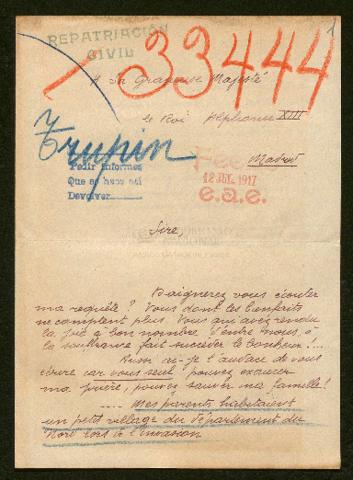 REPATRIACIÓN
CIVIL
1
33444
A Sa Gracieuse Majesté
le Roi Alphonse XIII
Madrid
Trupin
Pedir informes
Que se hace así
Devolver
12 JUL. 1917
e.a.e.
Sire,
Daignerez vous écouter
ma requête? Vous dont les bienfaits
ne comptent plus. Vous qui avez rendu
la joie à bon nombre d'entre nous, à
la souffrance fait succéder le bonheur!...
Aussi ai-je l'audace de vous
écrire car vous seul pouvez exaucer
ma prière, pouvez sauver ma famille!
.... Mes parents habitaient
un petit village du département du
Nord lors de l'invasion